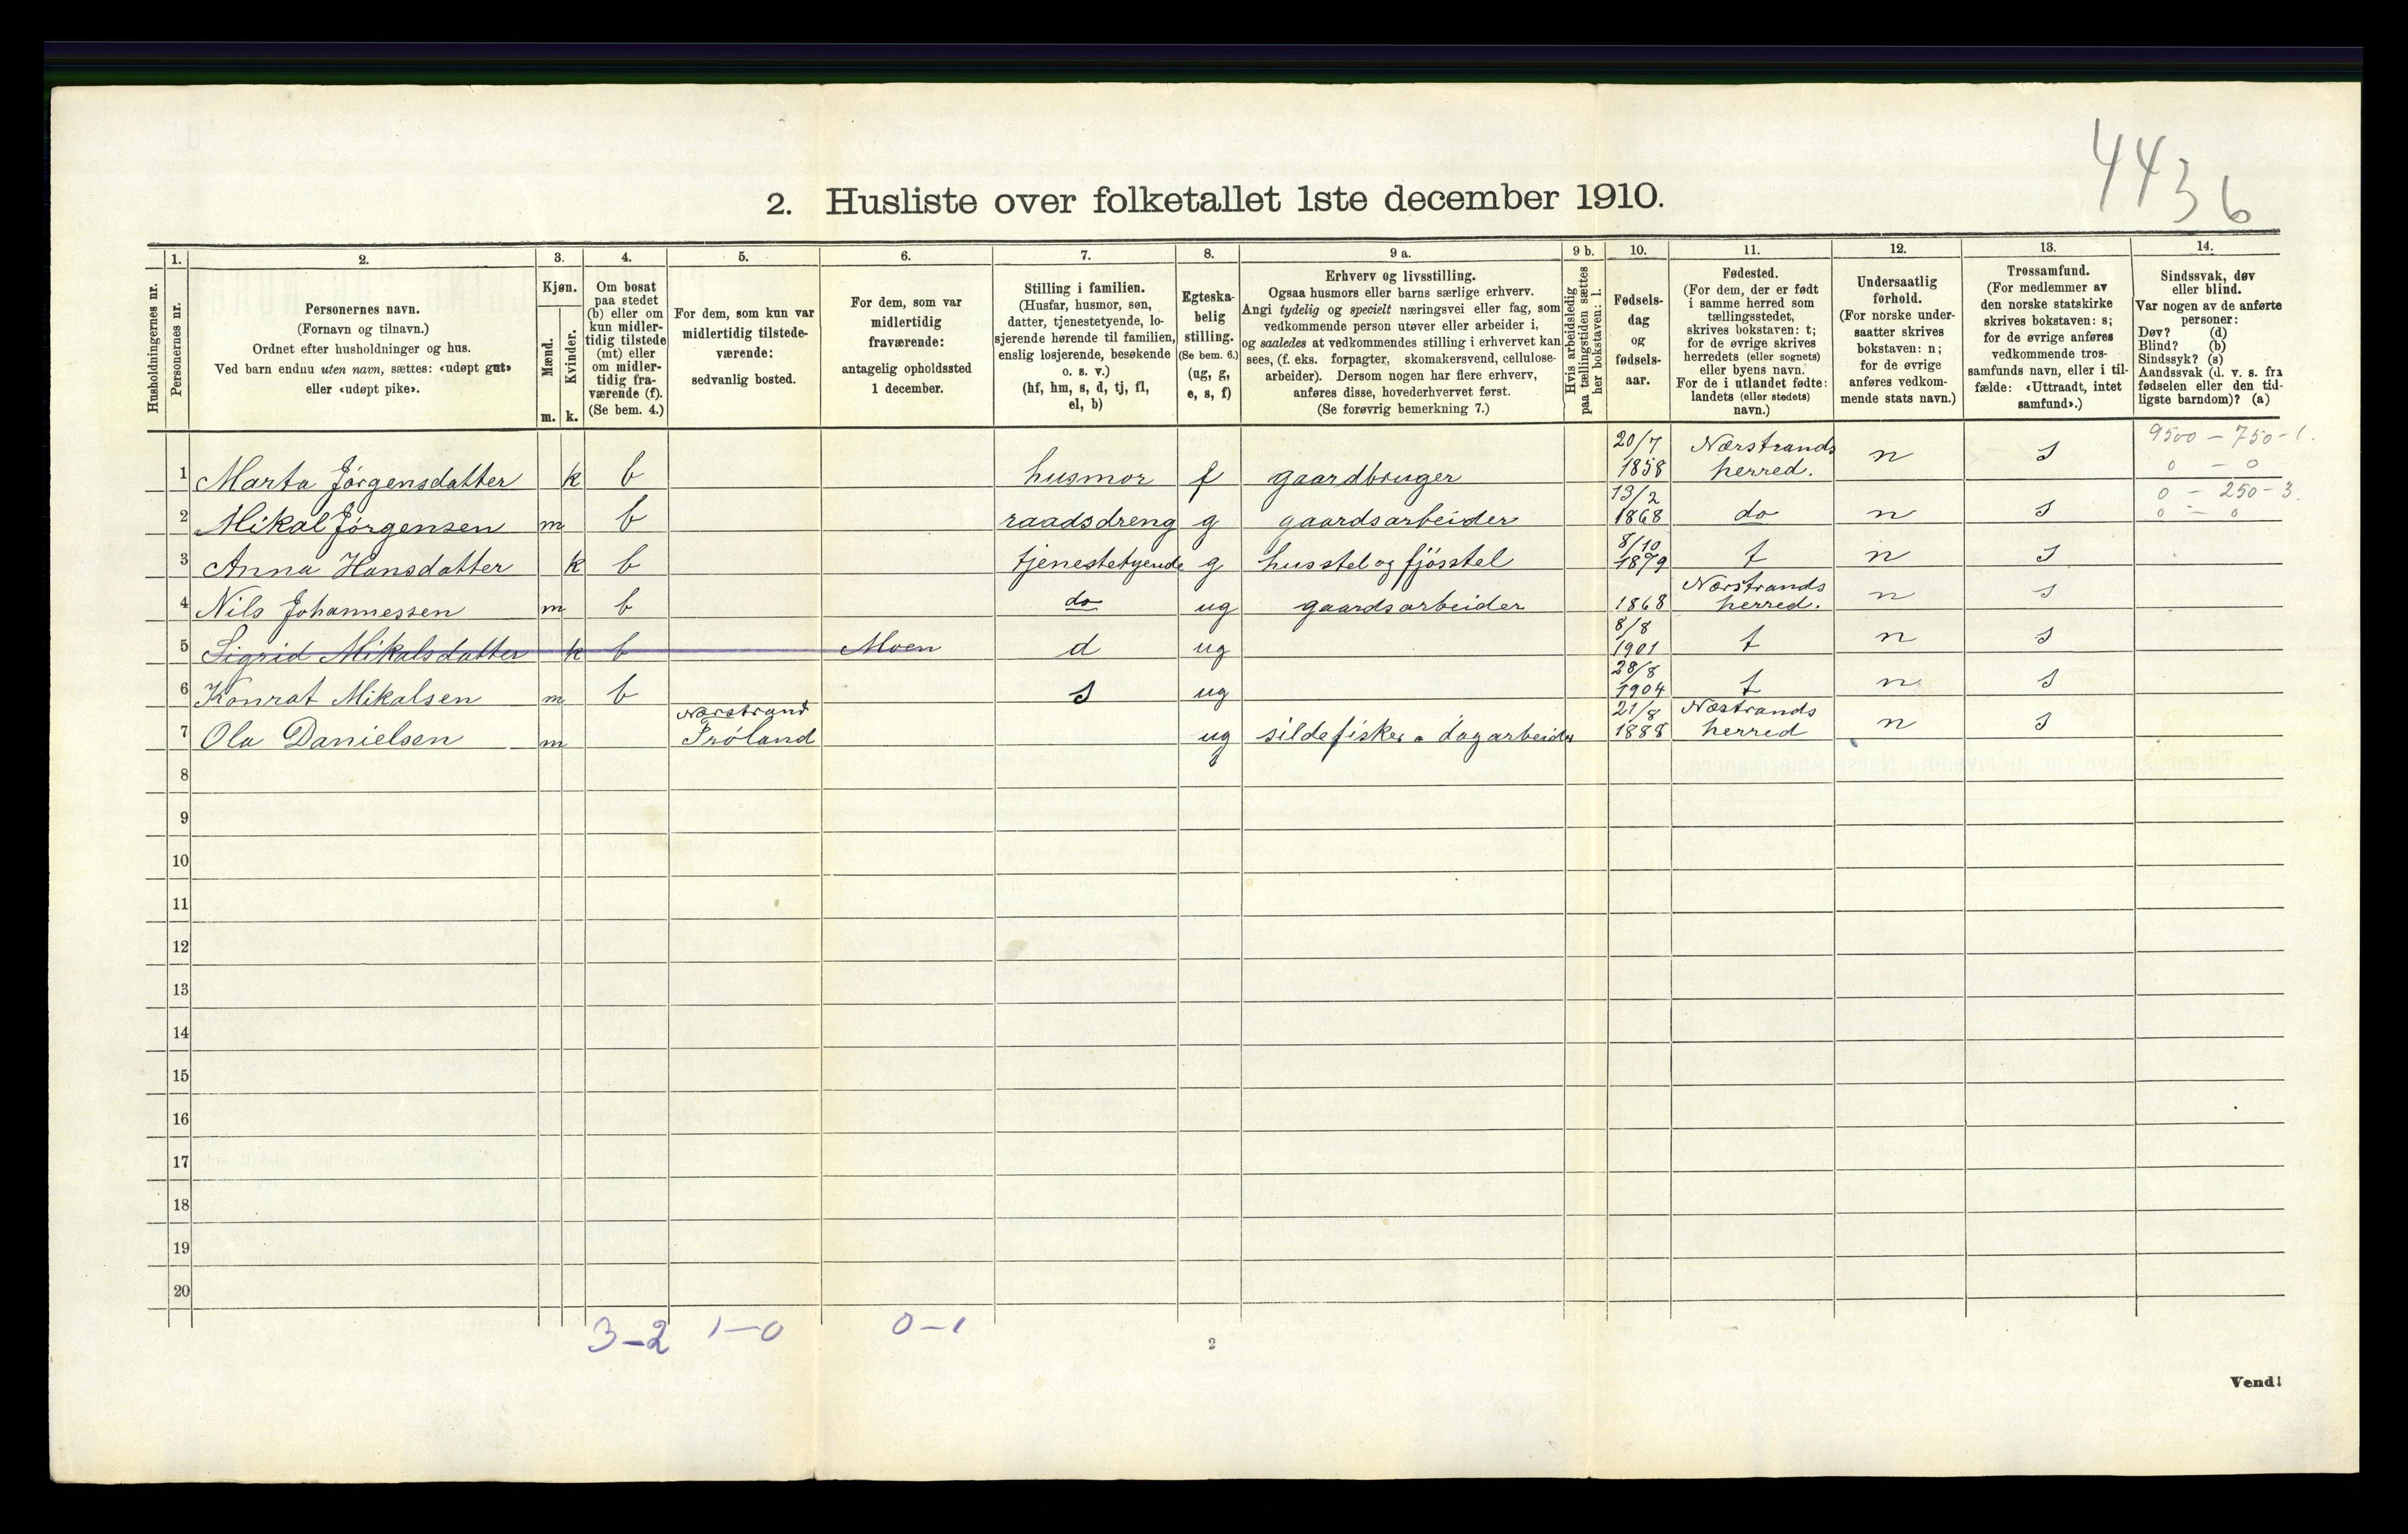 4436
2. Husliste over folketallet 1ste december 1910.
Husholdningernes nr.
1.
Personernes nr.
2.
Personernes navn.
(Fornavn og tilnavn.)
Ordnet efter husholdninger og hus.
Ved barn endnu uten navn, sættes: «udøpt gut»
eller «udøpt pike».
3.
Kjøn.
Mænd.
Kvinder.
m. k.
4.
Om bosat
paa stedet
(b) eller om
kun midler-
tidig tilstede
(mt) eller
om midler-
tidig fra-
værende (f).
(Se bem. 4.)
5.
For dem, som kun var
midlertidig tilstede-
værende:
sedvanlig bosted.
6.
For dem, som var
midlertidig
fraværende:
antagelig opholdssted
1 december.
7.
Stilling i familien.
(Husfar, husmor, søn,
datter, tjenestetyende, lo-
sjerende hørende til familien,
enslig losjerende, besøkende
o. s. v.)
(hf, hm, s, d, tj, fl,
el, b)
8.
Egteska-
belig
stilling.
(Se bem. 6.)
(ug, g,
e, s, f)
9 a.
Erhverv og livsstilling.
Ogsaa husmors eller barns særlige erhverv.
Angi tydelig og specielt næringsvei eller fag, som
vedkommende person utøver eller arbeider i,
og saaledes at vedkommendes stilling i erhvervet kan
sees, (f. eks. forpagter, skomakersvend, cellulose-
arbeider). Dersom nogen har flere erhverv,
anføres disse, hovederhvervet først.
(Se forøvrig bemerkning 7.)
9 b.
Hvis arbeidsledig
paa tællingstiden sættes
her bokstaven: l.
10.
Fødsels-
dag
og
fødsels-
aar.
11.
Fødested.
(For dem, der er født
i samme herred som
tællingsstedet,
skrives bokstaven: t;
for de øvrige skrives
herredets (eller sognets)
eller byens navn.
For de i utlandet fødte:
landets (eller stedets)
navn.)
12.
Undersaatlig
forhold.
(For norske under-
saatter skrives
bokstaven: n;
for de øvrige
anføres vedkom-
mende stats navn.)
13.
Trossamfund.
(For medlemmer av
den norske statskirke
skrives bokstaven: s;
for de øvrige anføres
vedkommende tros-
samfunds navn, eller i til-
fælde: «Uttraadt, intet
samfund».)
14.
Sindssvak, døv
eller blind.
Var nogen av de anførte
personer:
Døv? (d)
Blind? (b)
Sindssyk? (s)
Aandssvak (d. v. s. fra
fødselen eller den tid-
ligste barndom)? (a)
20/7 Nærstrands 9500 – 750 – 1.
1 Marta Jørgensdatter k b husmor f gaardbruger 1858 herred. n s 0 – 0
13/2 0 – 250 – 3.
2 Mikal Jørgensen m b raadsdreng g gaardsarbeider 1868 do n s 0 – 0
8/10
3 Anna Hansdatter k b tjenestetyende g husstel og fjösstel 1879 t n s
Nærstrands
4 Nils Johannessen m b do ug gaardsarbeider 1868 herred. n s
8/8
5 Sigrid Mikalsdatter k b Moen d ug 1901 t n s
28/8
6 Konrat Mikalsen m b s ug 1904 t n s
Nærstrand 21/8 Næstrands
7 Ola Danielsen m Fröland ug sildefisker o dagarbeider 1888 herred n s
8
9
10
11
12
13
14
15
16
17
18
19
20
3–2 1–0 0–1
2
Vend!